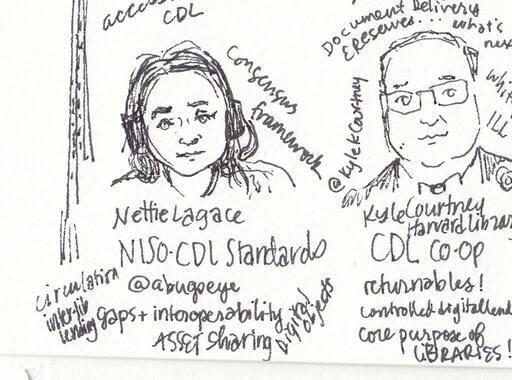 access
CDL
consensus
framework
Nettie Lagace
NISO-CDL Standards
@abugseye
circulation
interlib
lending
gaps + interoperability
Asset Sharing
Digital
objects
Document Delivery
Ereserves... what's
next
ILL
@KyleKCourtney
Kyle Courtney
Harvard Librar
CDL CO-OP
returnables!
controlled digital lend
core purpose of
LIBRARIES!